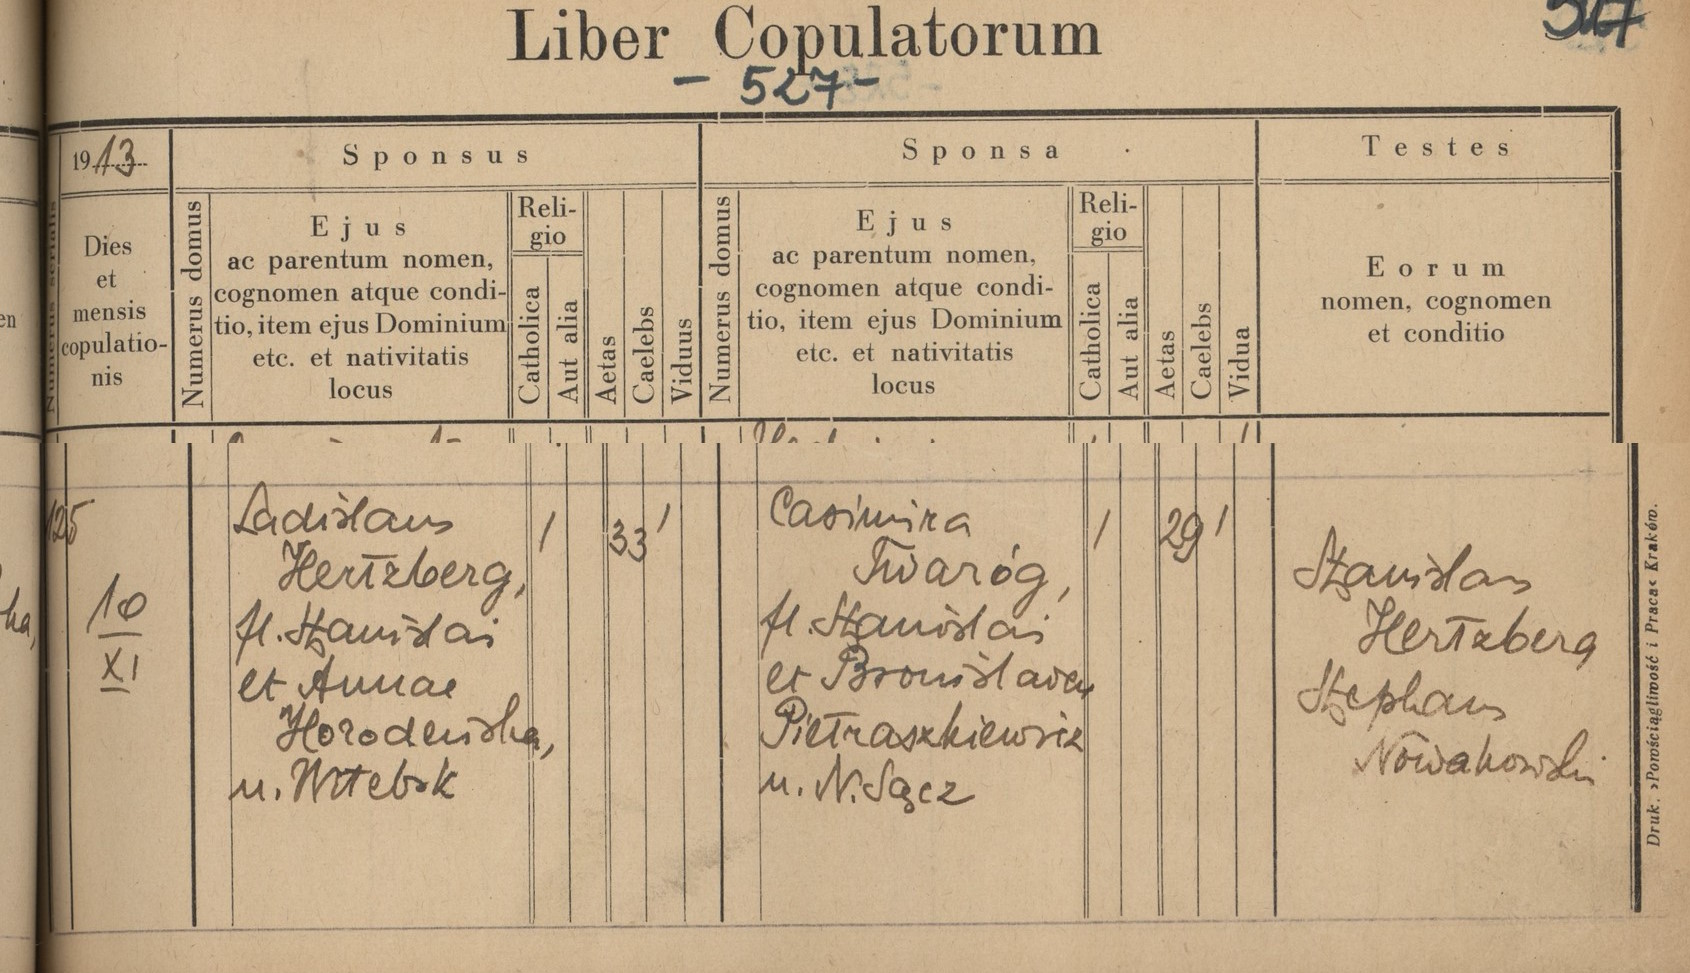 Liber Copulatorum
527
- 527 -
1913
Sponsus
Sponsa
Testes
Numerus serialis
Dies
et
mensis
copulatio-
nis
Numerus domus
Ejus
ac parentum nomen,
cognomen atque condi-
tio, item ejus Dominium
etc. et nativitatis
locus
Reli-
gio
Catholica
Aut alia
Aetas
Caelebs
Viduus
Numerus domus
Ejus
ac parentum nomen,
cognomen atque condi-
tio, item ejus Dominium
etc. et nativitatis
locus
Reli-
gio
Catholica
Aut alia
Aetas
Caelebs
Vidua
Eorum
nomen, cognomen
et conditio
125
10
XI
Ladislaus
Hertzberg,
fl. Stanislai
et Annae
Horodenska,
n. Witebsk
1
33
1
Casimira
Twaróg,
fl. Stanislai
et Bronislavae
Pietraszkiewicz
n. N. Sącz
1
29
1
Stanislaus
Hertzberg
Stephanus
Nowakowski
Druk. »Powściągliwość i Praca« Kraków.